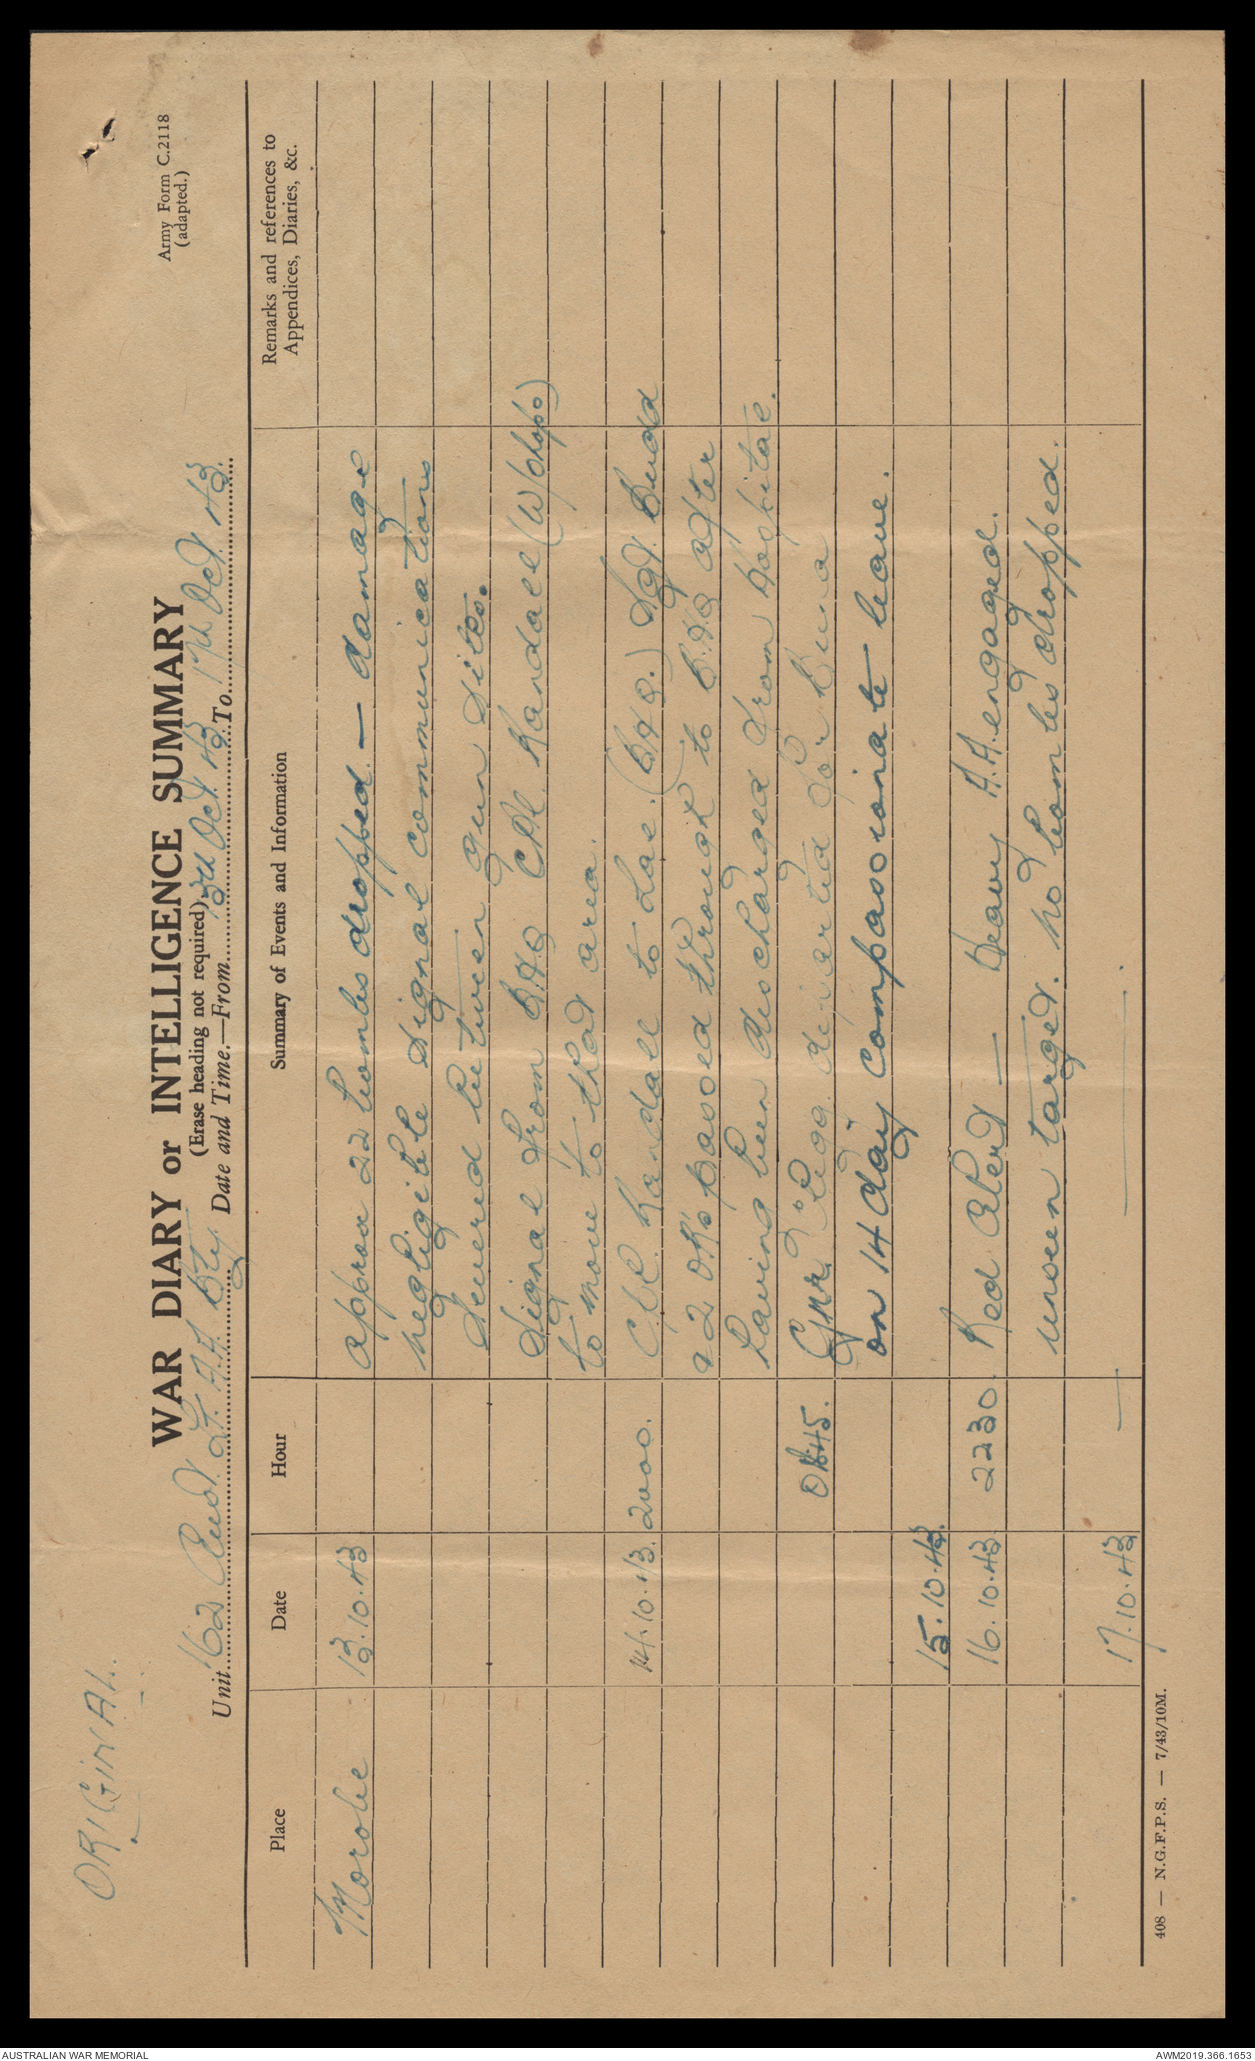 ORIGINAL.
Army Form C.2118
(adapted.)
WAR DIARY or INTELLIGENCE SUMMARY
(Erase heading not required)
Unit 162 Aust. Lt. A.A. Bty. Date and Time.—From 13th Oct 43 To 17th Oct. 43.
Place Date Hour Summary of Events and Information Remarks and references to
Appendices, Diaries, &c.
Morobe 13.10.43 approx 22 bombs dropped. — damage
negligible signal communications
severed between gun sites.
Signal from B.H.Q Cpl. Randall (W/shops)
to move to that area.
14.10.43. 2000. Cpl. Randall to Lae. (B.H.Q.) Sgt. Budd
a 2 OR's passed through to B.H.Q after
having been discharged from Hospital.
0845. Gnr. Pegg departed for Buna
on 14 day compassionate leave.
15.10.43.
16.10.43 2230. Red Alert — Heavy A.A. engaged.
unseen target. no bombs dropped.
17.10.43 — —
408 — N.G.F.P.S. — 7/43/10M.
AUSTRALIAN WAR MEMORIAL AWM2019.366.1653